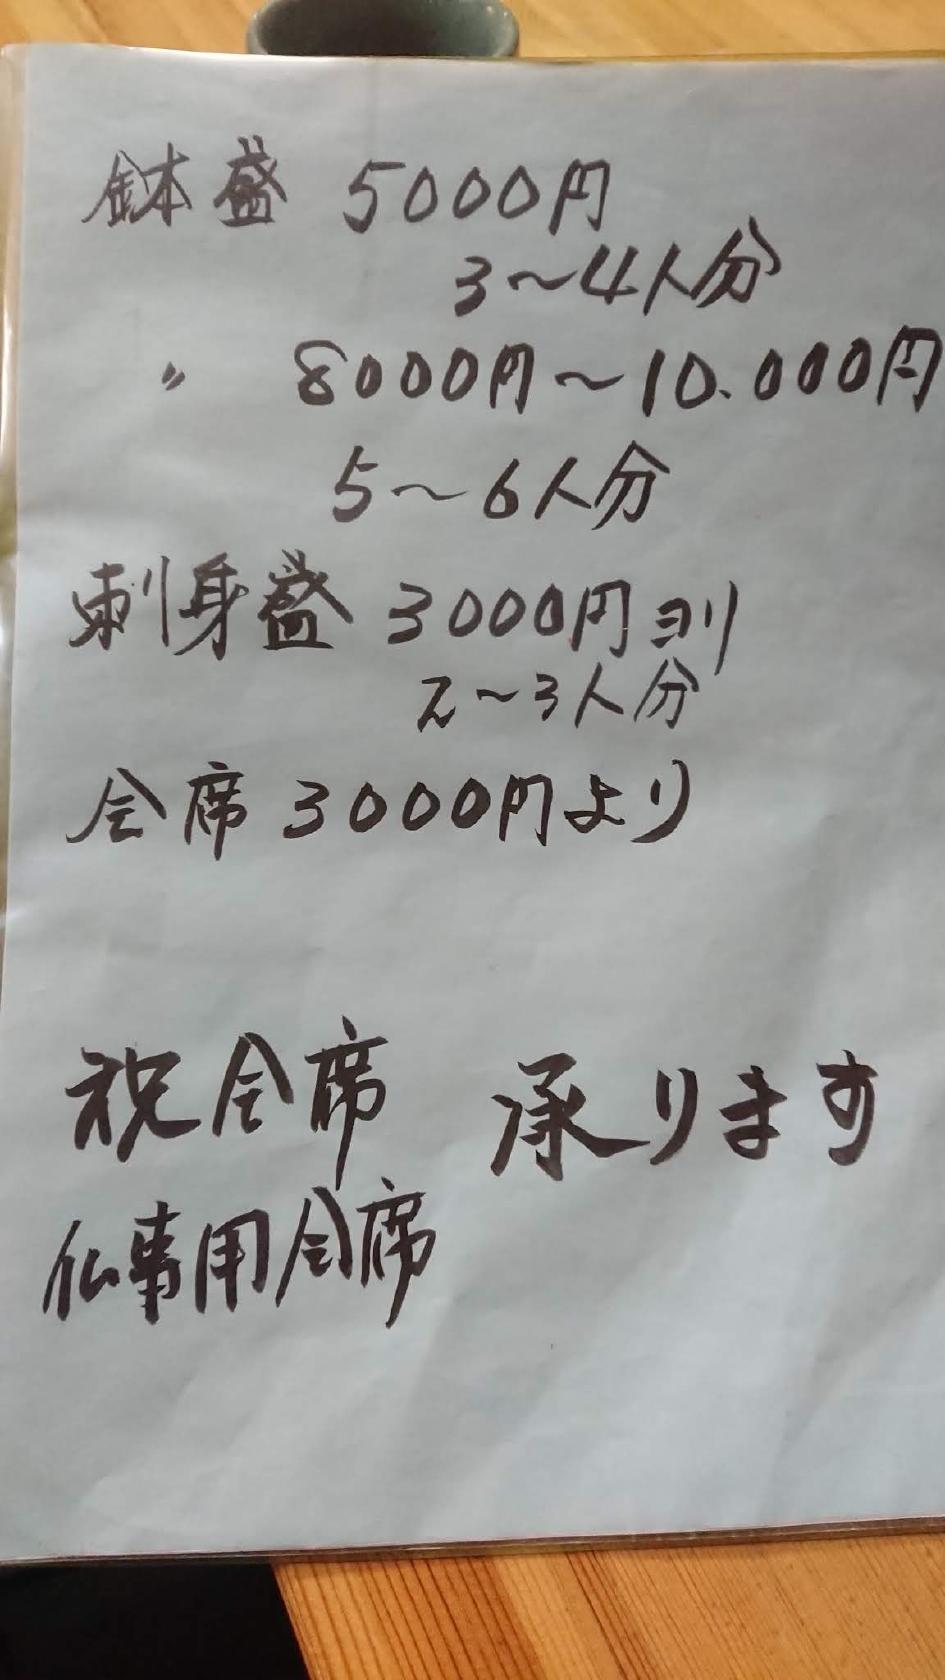 鉢盛 5000円
3〜4人分
〃 8000円〜10.000円
5〜6人分
刺身盛 3000円ヨリ
2〜3人分
会席 3000円より
祝会席 承ります
仏事用会席